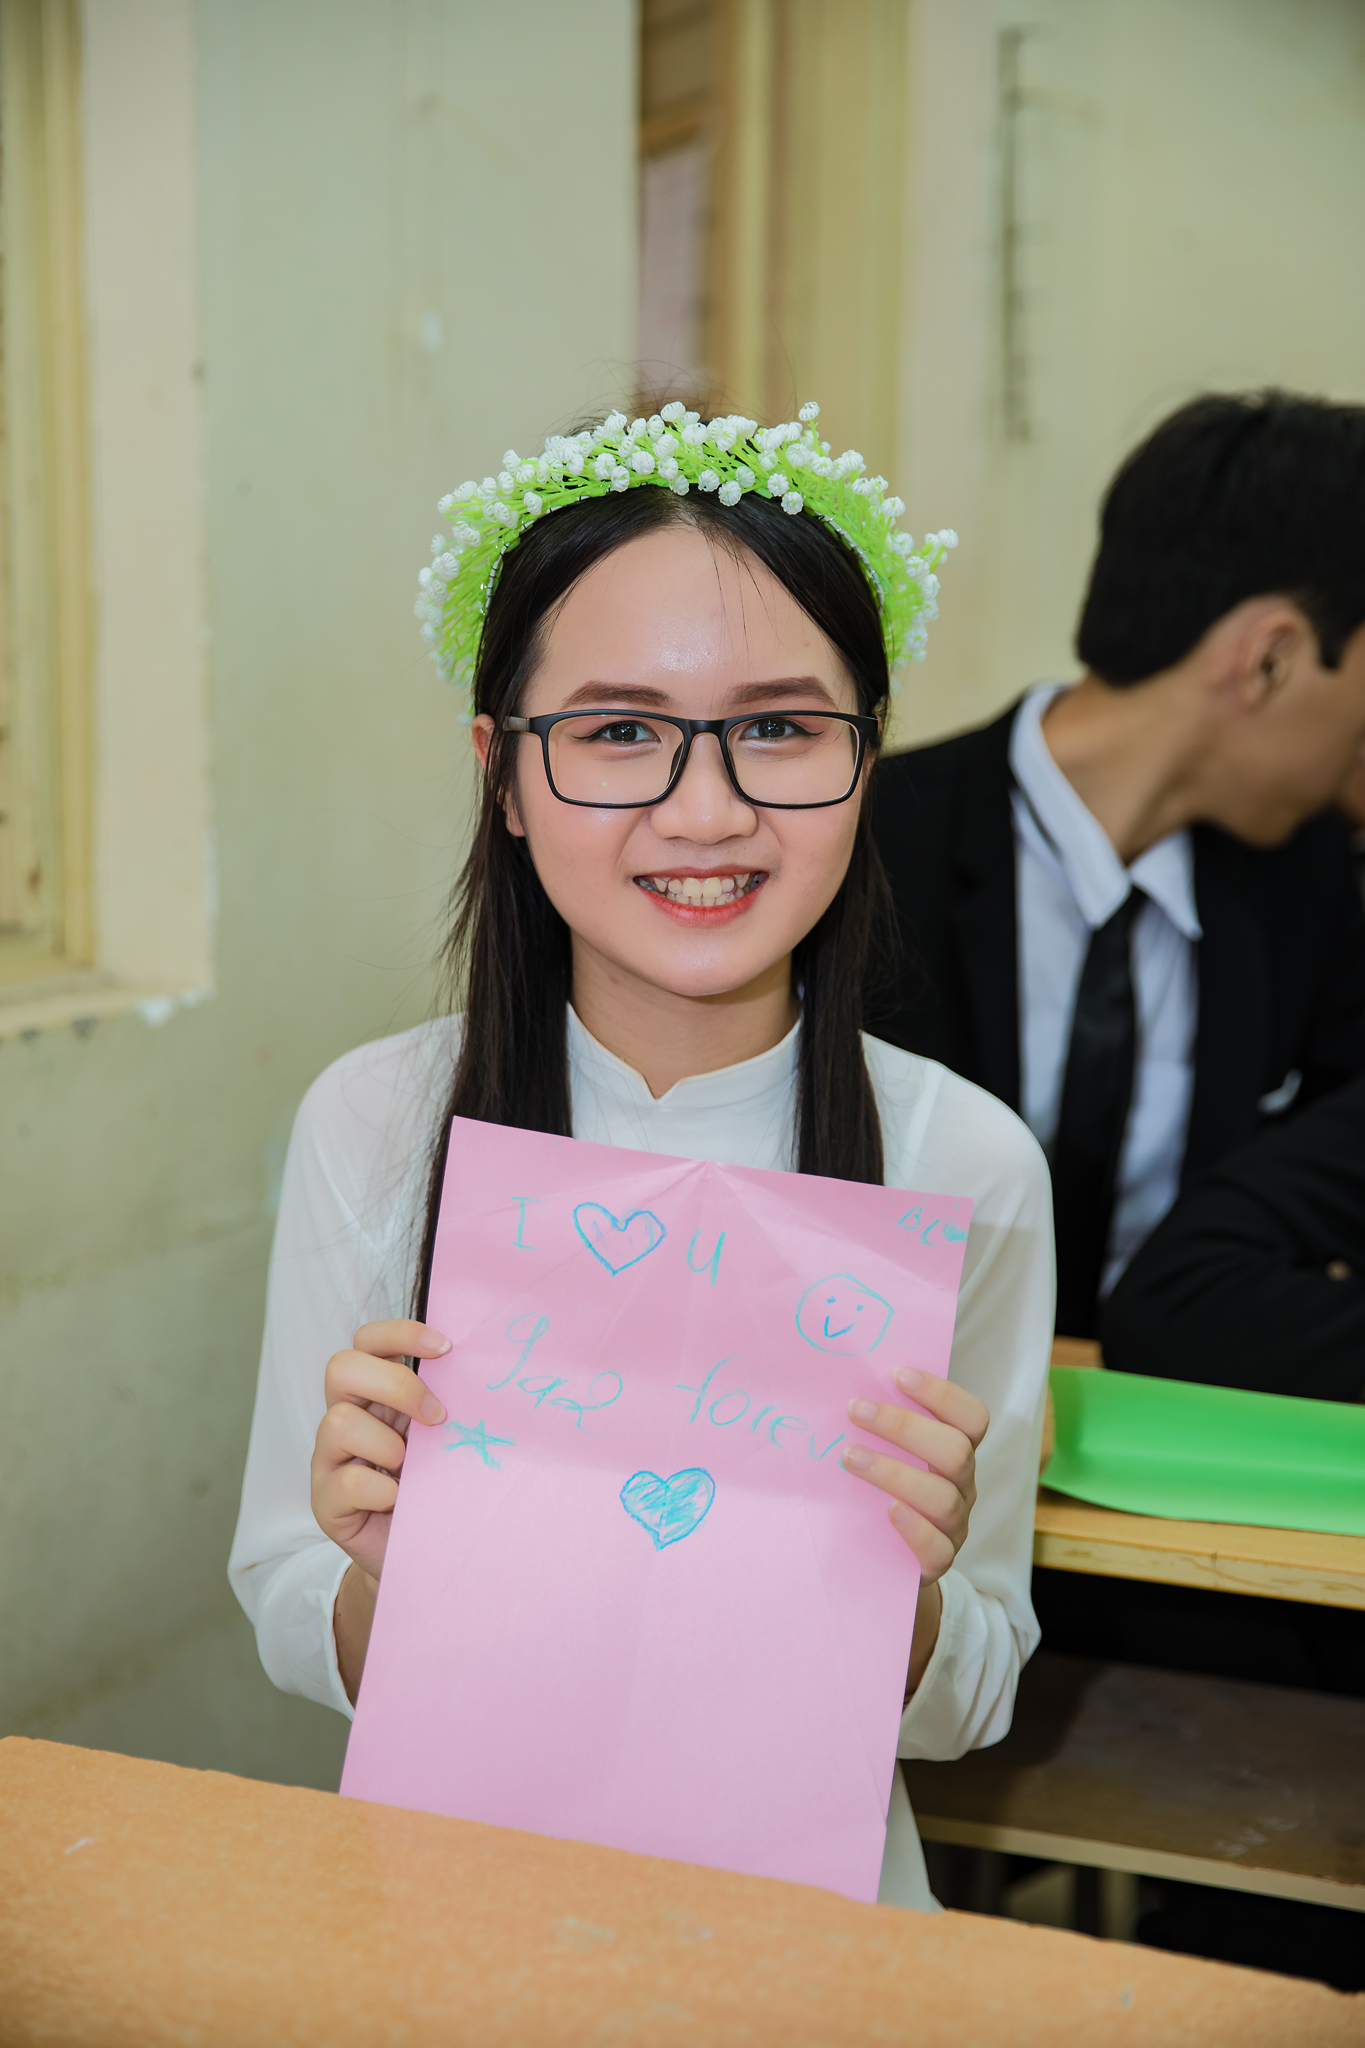 I U
BL
9a2 forev